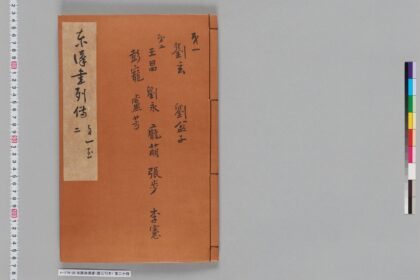 東漢書列傳 自一至
二
第一
劉玄 劉盆子
第二
王昌 劉永 龐萌 張步 李憲
彭寵 盧芳